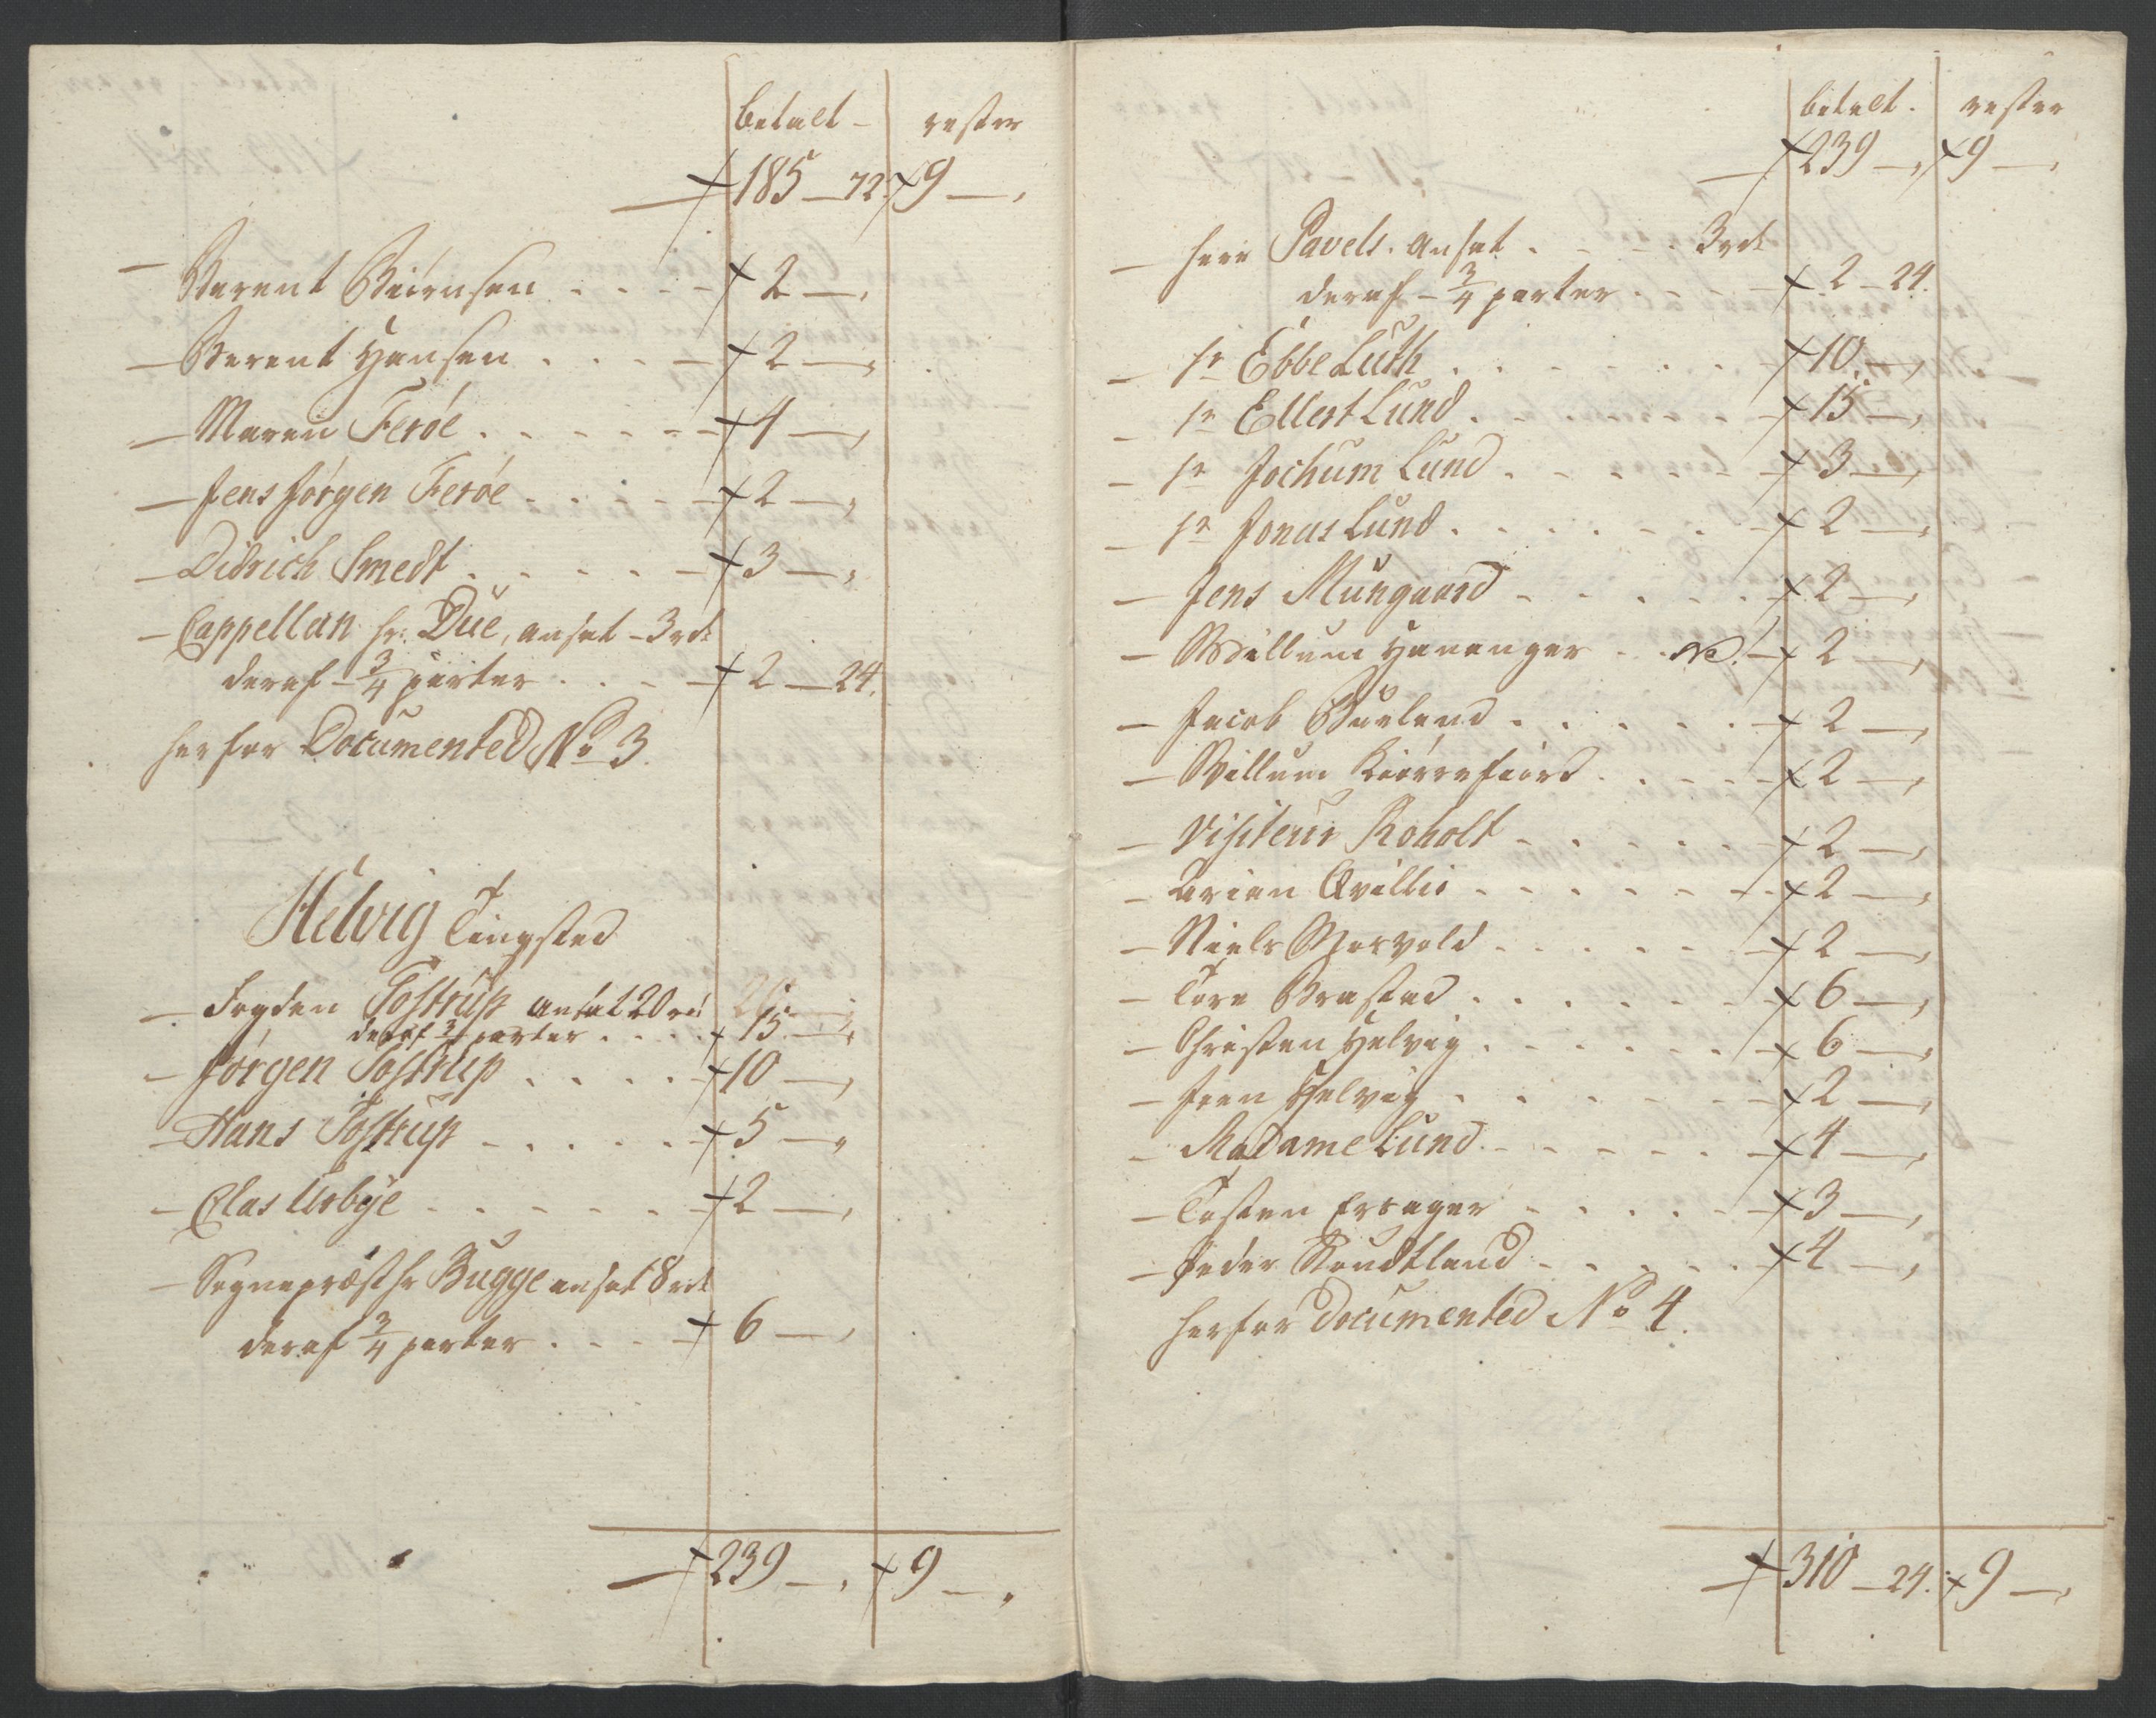 betalt – rester
185 – 72 9 –
– Berent Biörnsen . . . . 2 –
– Berent Hansen . . . . 2 –
– Maren Feröe . . . . . . 4 –
– Jens Jörgen Feröe . . . . 2 –
– Didrich Smedt . . . . . 3 –
– Cappellan hr: Due, ansat – 3 rdr
deraf – 3/4 parter . . . . 2 – 24.
herfor Documented No 3.
Helvig Tingsted
– Fogden Tostrup ansat 20 rd
deraf 3/4 parter . . . . 15 –
– Jörgen Tostrup . . . . 10 –
– Hans Tostrup . . . . . 5 –
– Clas Urbye . . . . . . 2 –
– Sognepræst hr Bugge ansat 8 rdr
deraf 3/4 parter . . . . 6 –
239 – 9 –
betalt. rester
239 – 9 –
– herr Pavels. ansat . . . . 3 rdr
deraf – 3/4 parter . . . . 2 – 24.
– sr Ebbe Luth . . . . . . 10 –
– sr Ellert Lund . . . . . . 15 –
– sr Jochum Lund . . . . . 3 –
– sr Jonas Lund . . . . . . 2 –
– Jens Mungaard . . . . . 2 –
– Willum Hananger . . 2 –
– Jacob Bueland . . . . . . 2 –
– Willum Kiörrefiord . . . . 2 –
– Visiteur Roholt . . . . . 2 –
– Arian Qvillie . . . . . . 2 –
– Niels Bosvold . . . . . . 2 –
– Tore Brasted . . . . . . 6 –
– Christen Helvig . . . . . 6 –
– Iven Helvig . . . . . . 2 –
– Madame Lund . . . . . . 4 –
– Tosten Ersager . . . . . 3 –
– Peder Rondtland . . . . . 4 –
herfor Documented No 4.
310 – 24. 9 –